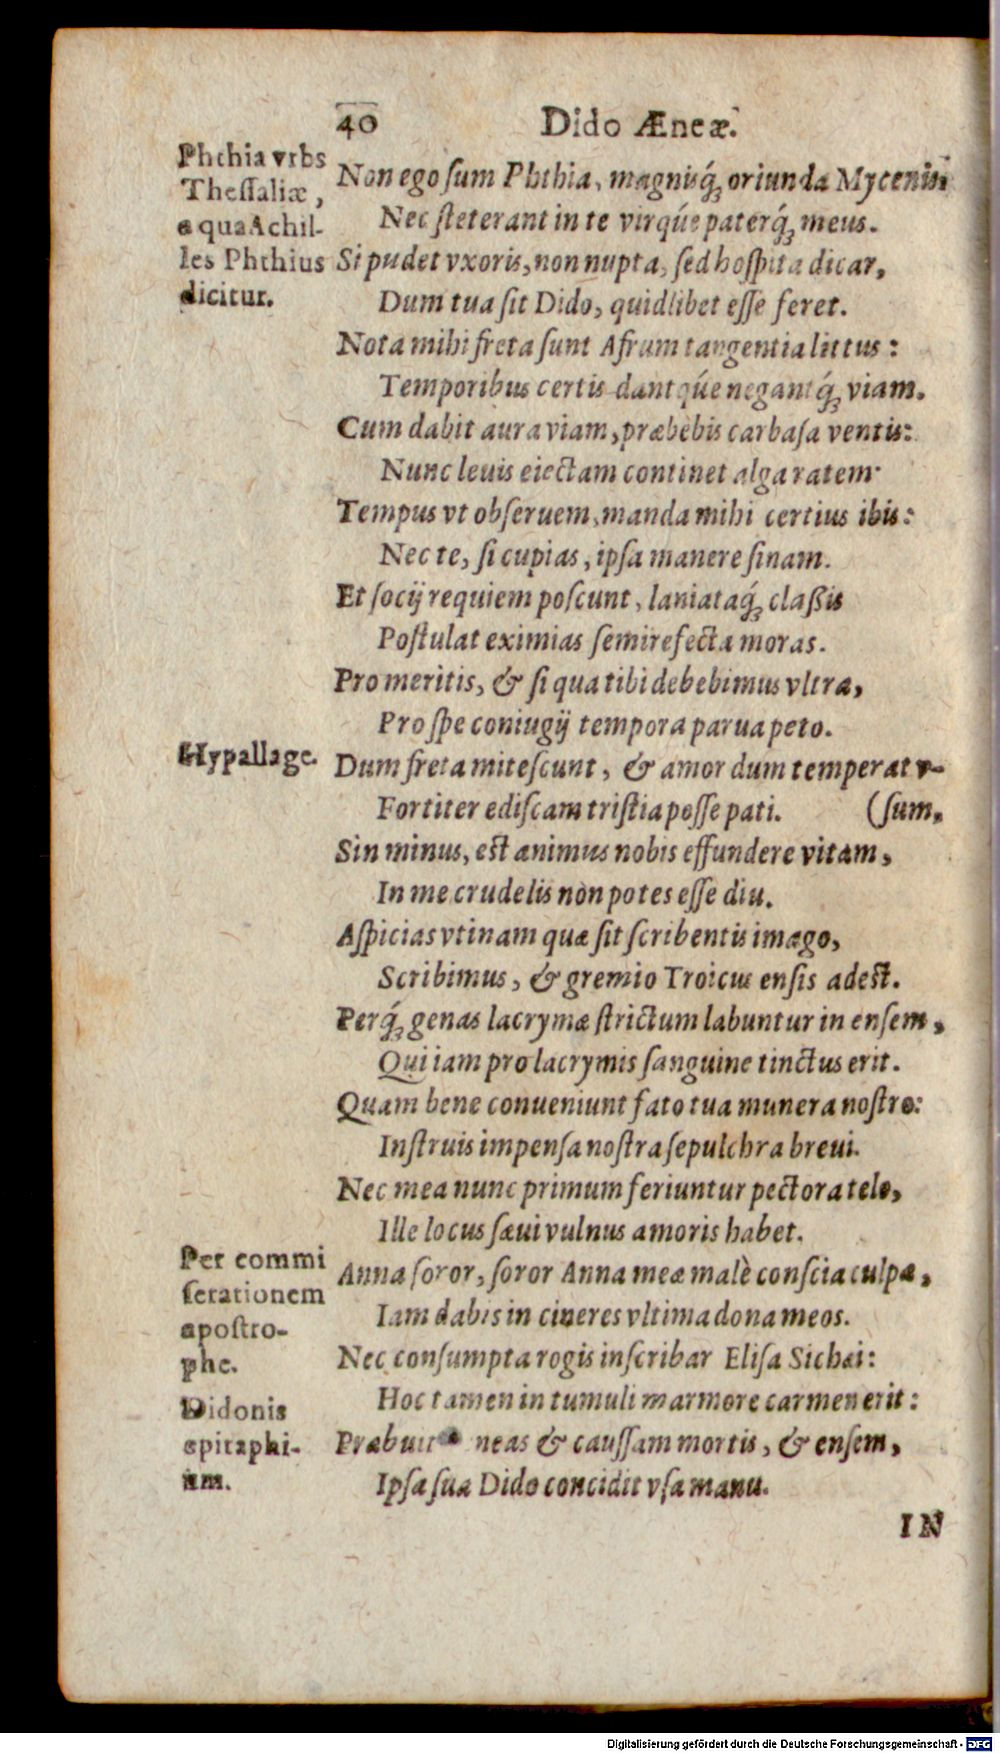 40
Dido Æneæ.
Phthia vrbs
Thessaliæ,
a qua Achil-
les Phthius
dicitur.
Non ego sum Phthia, magnisq́; oriunda Mycenis
Nec steterant in te virq́ue paterq́; meus.
Si pudet vxoris, non nupta, sed hospita dicar,
Dum tua sit Dido, quidlibet esse feret.
Nota mihi freta sunt Afrum tangentia littus:
Temporibus certis dantq́ue negantq́; viam.
Cum dabit aura viam, præbebis carbasa ventis:
Nunc leuis eiectam continet alga ratem.
Tempus vt obseruem, manda mihi certius ibis:
Nec te, si cupias, ipsa manere sinam.
Et socij requiem poscunt, laniataq́; claßis
Postulat eximias semirefecta moras.
Pro meritis, & si qua tibi debebimus vltra,
Pro spe coniugij tempora parua peto.
Hypallage.
Dum freta mitescunt, & amor dum temperat v-
Fortiter ediscam tristia posse pati. (sum,
Sin minus, est animus nobis effundere vitam,
In me crudelis non potes esse diu.
Aspicias vtinam quæ sit scribentis imago,
Scribimus, & gremio Troicus ensis adest.
Perq́; genas lacrymæ strictum labuntur in ensem,
Qui iam pro lacrymis sanguine tinctus erit.
Quam bene conueniunt fato tua munera nostro:
Instruis impensa nostra sepulchra breui.
Nec mea nunc primum feriuntur pectora telo,
Ille locus sæui vulnus amoris habet.
Per commi
serationem
apostro-
phe.
Anna soror, soror Anna meæ malè conscia culpæ,
Iam dabis in cineres vltima dona meos.
Nec consumpta rogis inscribar Elisa Sichæi:
Hoc tamen in tumuli marmore carmen erit:
Didonis
epitaphi-
um.
Præbuit neas & caussam mortis, & ensem,
Ipsa sua Dido concidit vsa manu.
IN
Digitalisierung gefördert durch die Deutsche Forschungsgemeinschaft - DFG